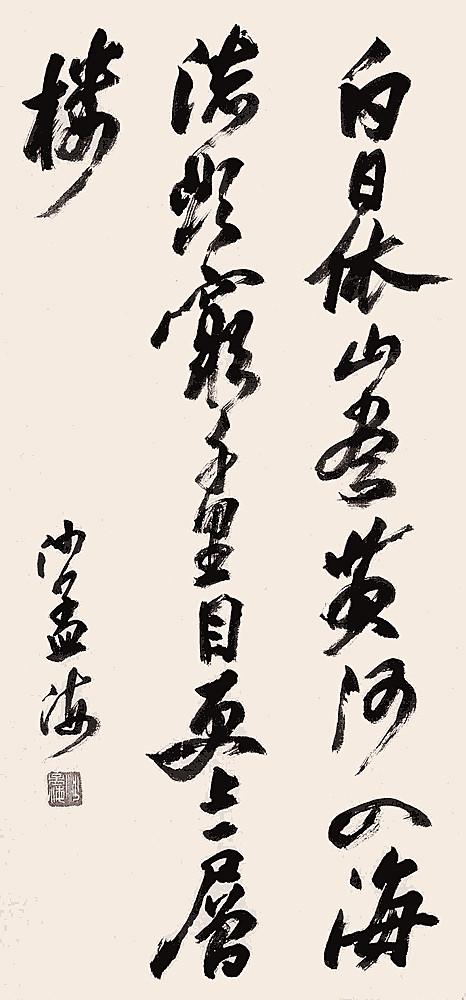 白日依山盡黄河入海
流欲窮千里目更上一層
楼
沙孟海